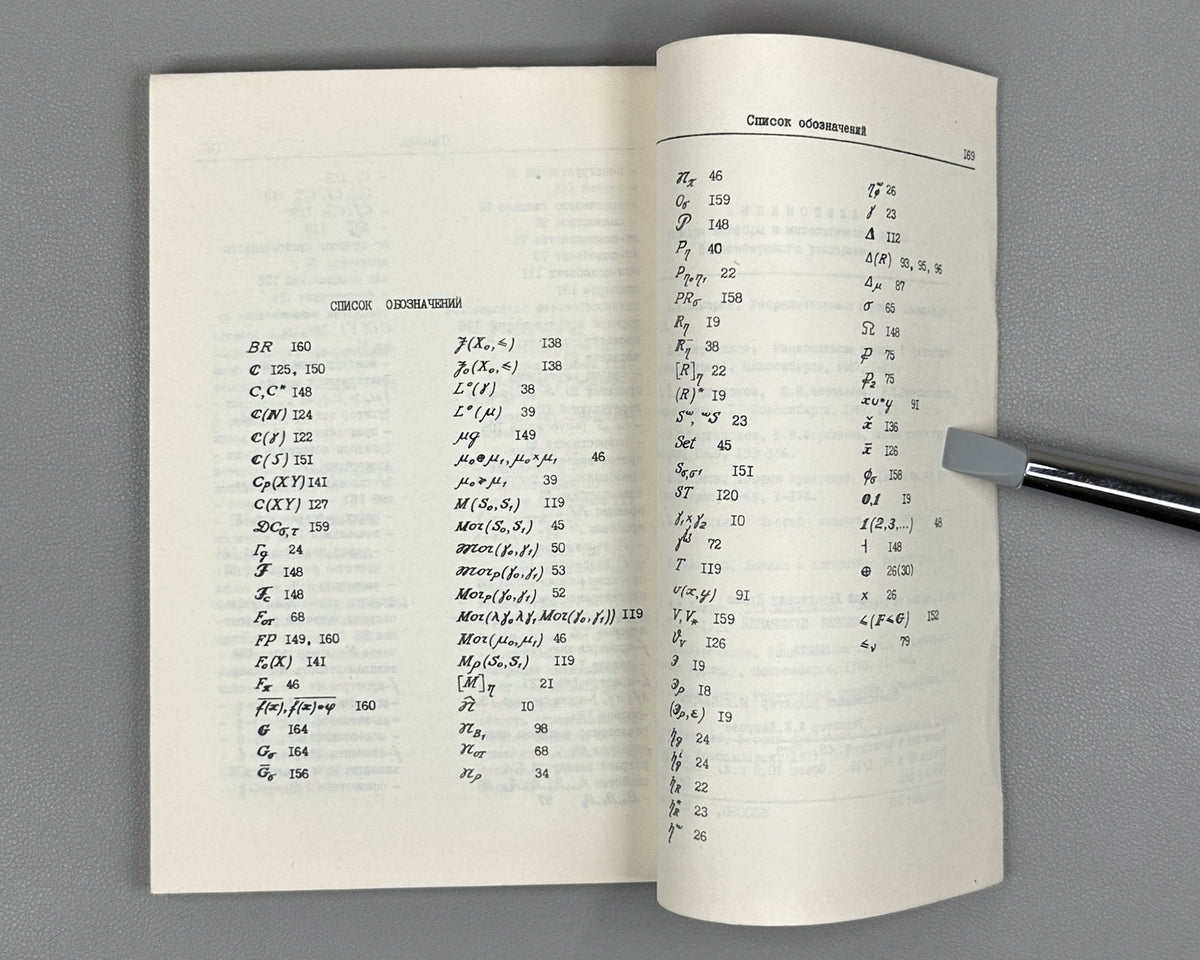 СПИСОК ОБОЗНАЧЕНИЙ
BR I60
ℂ I25, I50
C, C* I48
ℂ(N) I24
ℂ(γ) I22
ℂ(S) I5I
Cp(XY) I4I
C(XY) I27
𝒟Cσ,τ I59
24
ℱ I48
ℱc I48
Fот 68
FP I49, I60
F₀(X) I4I
46
I60
G I64
Gσ I64
G̅σ I56
𝒥(X₀,≤) I38
𝒥₀(X₀,≤) I38
L°(γ) 38
L°(μ) 39
μq I49
μ₀⊕μ₁, μ₀×μ₁ 46
39
M(S₀,S₁) II9
Mor(S₀,S₁) 45
𝓜or(γ₀,γ₁) 50
𝓜orₚ(γ₀,γ₁) 53
Morₚ(γ₀,γ₁) 52
Mor(λγ₀λγ₁Mor(γ₀,γ₁)) II9
Mor(μ₀,μ₁) 46
Mₚ(S₀,S₁) II9
[M]η 2I
n̂ I0
98
nот 68
nρ 34
Список обозначений
I69
46
Oσ I59
𝒫 I48
Pη 40
Pη₀η₁ 22
PRσ I58
Rη I9
R⁻η 38
[R]η 22
(R)* I9
Sʷ, ʷS 23
Set 45
Sσ,σ' I5I
ST I20
γ₁×γ₂ I0
72
T II9
υ(x,y) 9I
V, V* I59
I26
Э I9
Эρ I8
(Эρ,ε) I9
ηq 24
24
ηR 22
η*R 23
ηʷ 26
26
γ 23
Δ II2
Δ(R) 93, 95, 96
Δμ 87
σ 65
Ω I48
75
75
x∪*y 9I
x̌ I36
x̄ I26
ϕσ I58
0,1 I9
1(2,3,...) 48
⊣ I48
⊕ 26(30)
× 26
≤(F≤G) I52
≤ν 79